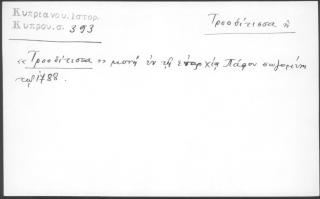 Κυπριανου. Ιστορ.
Κυπρου. σ. 393
Τροοδίτισσα ἡ
« Τροοδίτισσα » μονὴ ἐν τῇ ἐπαρχίᾳ Πάφου σωζομένη
τῷ 1788.